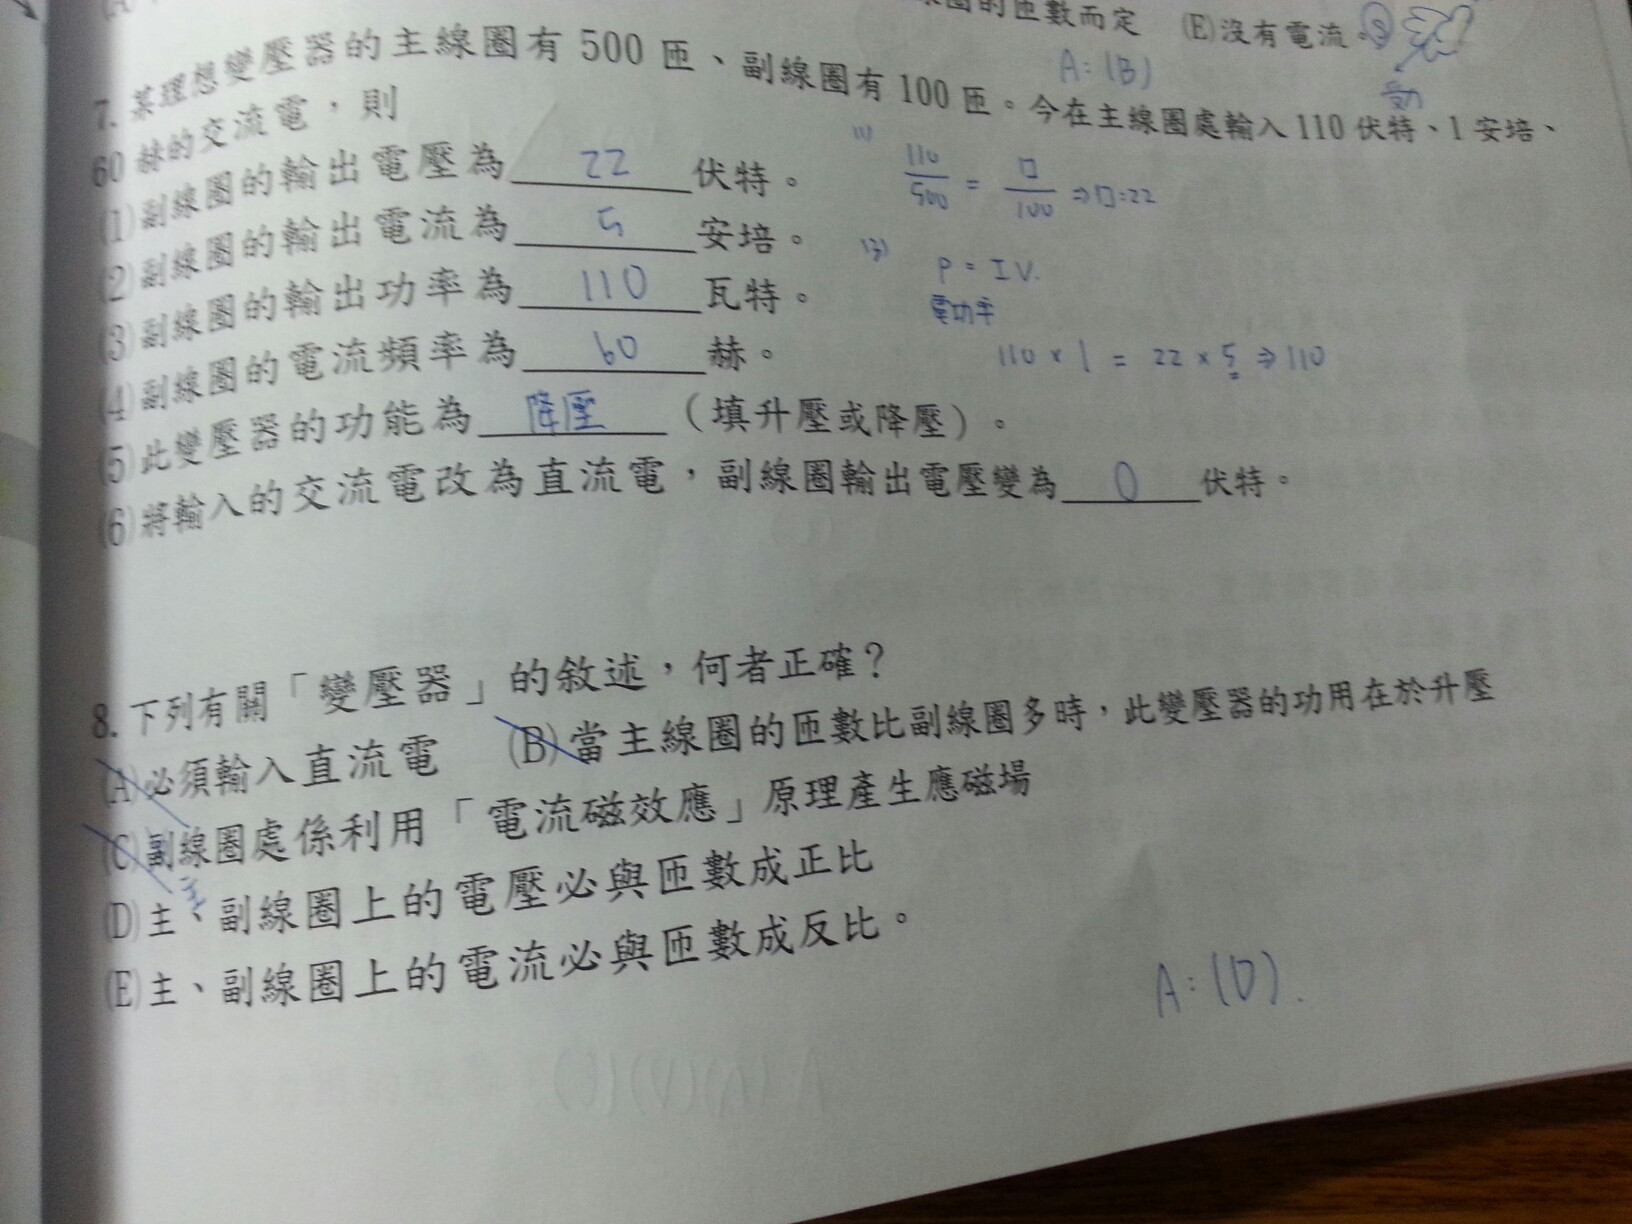 線圈的匝數而定 (E)沒有電流。
A:(B)
7. 某理想變壓器的主線圈有 500 匝、副線圈有 100 匝。今在主線圈處輸入 110 伏特、1 安培、
60 赫的交流電,則
(1)副線圈的輸出電壓為 22 伏特。
(2)副線圈的輸出電流為 5 安培。
(3)副線圈的輸出功率為 110 瓦特。
(4)副線圈的電流頻率為 60 赫。
(5)此變壓器的功能為 降壓 (填升壓或降壓)。
(6)將輸入的交流電改為直流電,副線圈輸出電壓變為 0 伏特。
(1) 110/500 = □/100 ⇒ □=22
(3) P = IV.
電功率
110 × 1 = 22 × 5 ⇒ 110
8. 下列有關「變壓器」的敘述,何者正確?
(A)必須輸入直流電 (B)當主線圈的匝數比副線圈多時,此變壓器的功用在於升壓
(C)副線圈處係利用「電流磁效應」原理產生應磁場
主
(D)主、副線圈上的電壓必與匝數成正比
(E)主、副線圈上的電流必與匝數成反比。
A:(D).